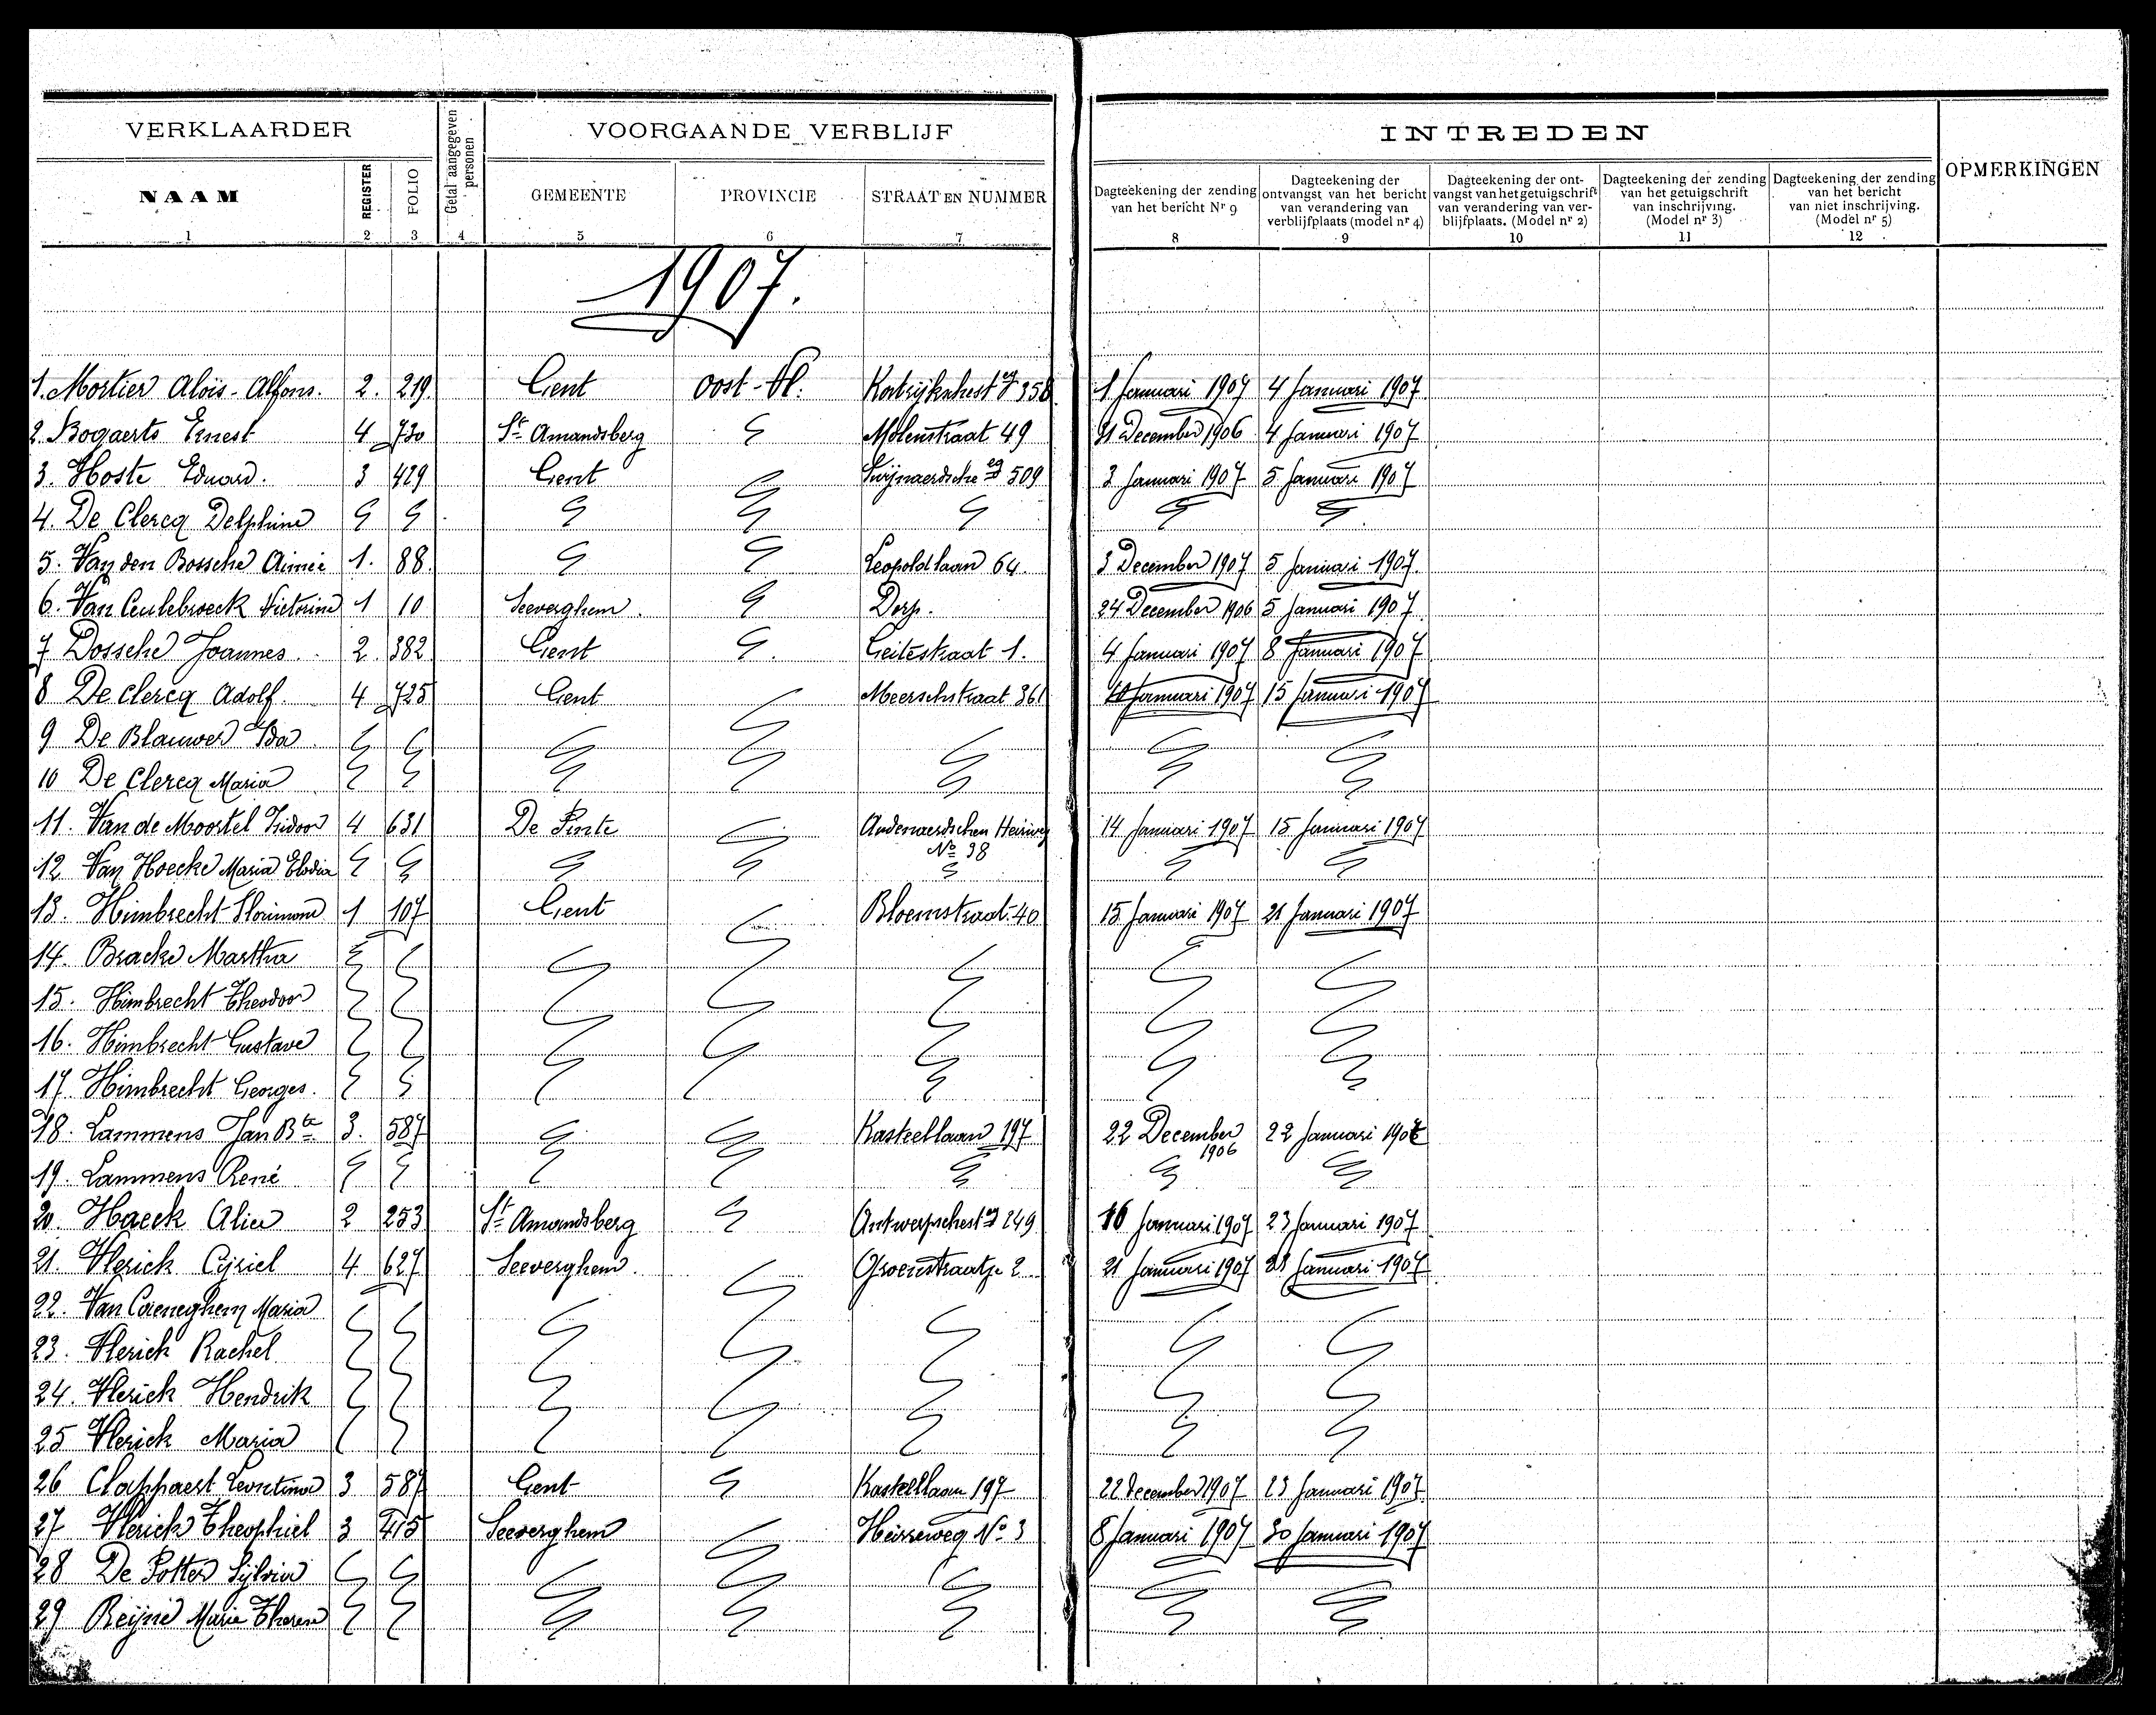 VERKLAARDER
Getal aangegeven personen
VOORGAANDE VERBLIJF
INTREDEN
OPMERKINGEN
NAAM REGISTER FOLIO GEMEENTE PROVINCIE STRAAT EN NUMMER
Dagteekening der zending van het bericht Nr 9
Dagteekening der ontvangst van het bericht van verandering van verblijfplaats (model nr 4)
Dagteekening der ontvangst van het getuigschrift van verandering van verblijfplaats. (Model nr 2)
Dagteekening der zending van het getuigschrift van inschrijving. (Model nr 3)
Dagteekening der zending van het bericht van niet inschrijving. (Model nr 5)
1 2 3 4 5 6 7 8 9 10 11 12
1907.
1. Mortier Aloïs-Alfons. 2. 219. Gent Oost-Vl. 358 1 Januari 1907 4 Januari 1907
2. Bogaerts Ernest 4 730 St Amandsberg Molenstraat 49 31 December 1906 4 Januari 1907
3. Hoste Eduard. 3 429 Gent 509 3 Januari 1907 5 Januari 1907
4. De Clercq Delphine
5. Van den Bossche Aimée 1. 88. Leopoldlaan 64. 3 December 1907 5 Januari 1907.
6. Van Ceulebroeck Victorine 1 10 Seeverghem. Dorp. 24 December 1906 5 Januari 1907
7 Dossche Joannes. 2. 382 Gent Geitestraat 1. 4 Januari 1907 8 Januari 1907
8 De Clercq Adolf. 4 725 Gent Meerschstraat 361 10 Januari 1907 15 Januari 1907
9 De Blauwer Ida.
10 De Clercq Maria
11. Van de Moortel Isidoor 4 631 De Pinte Audenaerdschen Heirweg 14 Januari 1907 15 Januari 1907
No 38
12 Van Hoecke Maria Elodia
13. Himbrecht Florimond 1 107 Gent Bloemstraat 40 15 Januari 1907 21 Januari 1907
14. Bracke Martha
15. Himbrecht Theodoor
16. Himbrecht Gustave
17. Himbrecht Georges.
18. Lammens Jan Bte 3. 587 Kasteellaan 197 22 December 1906 22 Januari 1907
19. Lammens René
20. Haeck Alice 2 253 St Amandsberg 249 16 Januari 1907 23 Januari 1907
21. Vlerick Cyriel 4 627 Seeverghem. Groenstraatje 2 21 Januari 1907 28 Januari 1907
22. Van Caeneghem Maria
23. Vlerick Rachel
24. Vlerick Hendrik
25 Vlerick Maria
26 Clappaert Leontine 3 587 Gent Kasteellaan 197 22 December 1907 23 Januari 1907
27 Vlerick Theophiel 3 415 Seeverghem Heirweg No 3 8 Januari 1907 30 Januari 1907
28 De Potter Sylvie
29 Reijné Marie Therese